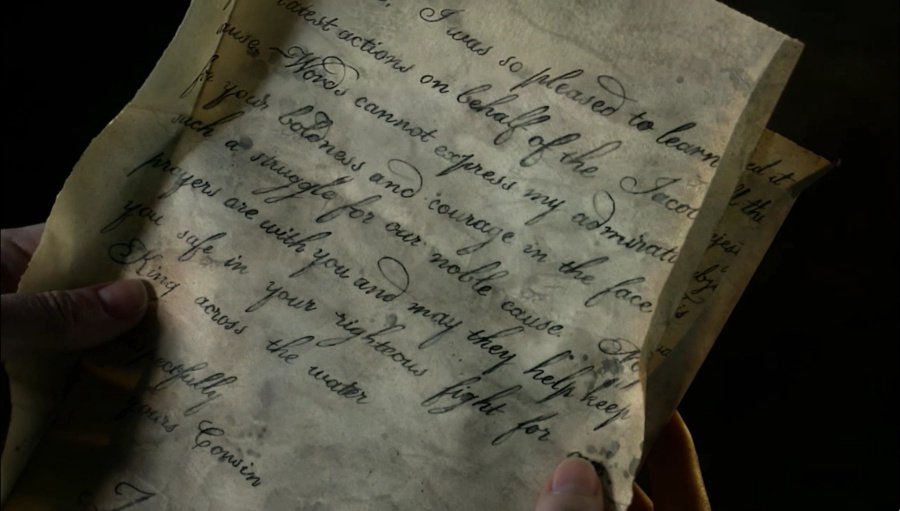 I was so pleased to learn
latest actions on behalf of the Jacob
ause. Words cannot express my admirati
for your boldness and courage in the face
such a struggle for our noble cause. My
prayers are with you and may they help keep
you safe in your righteous fight for
King across the water
pectfully
yours Cousin